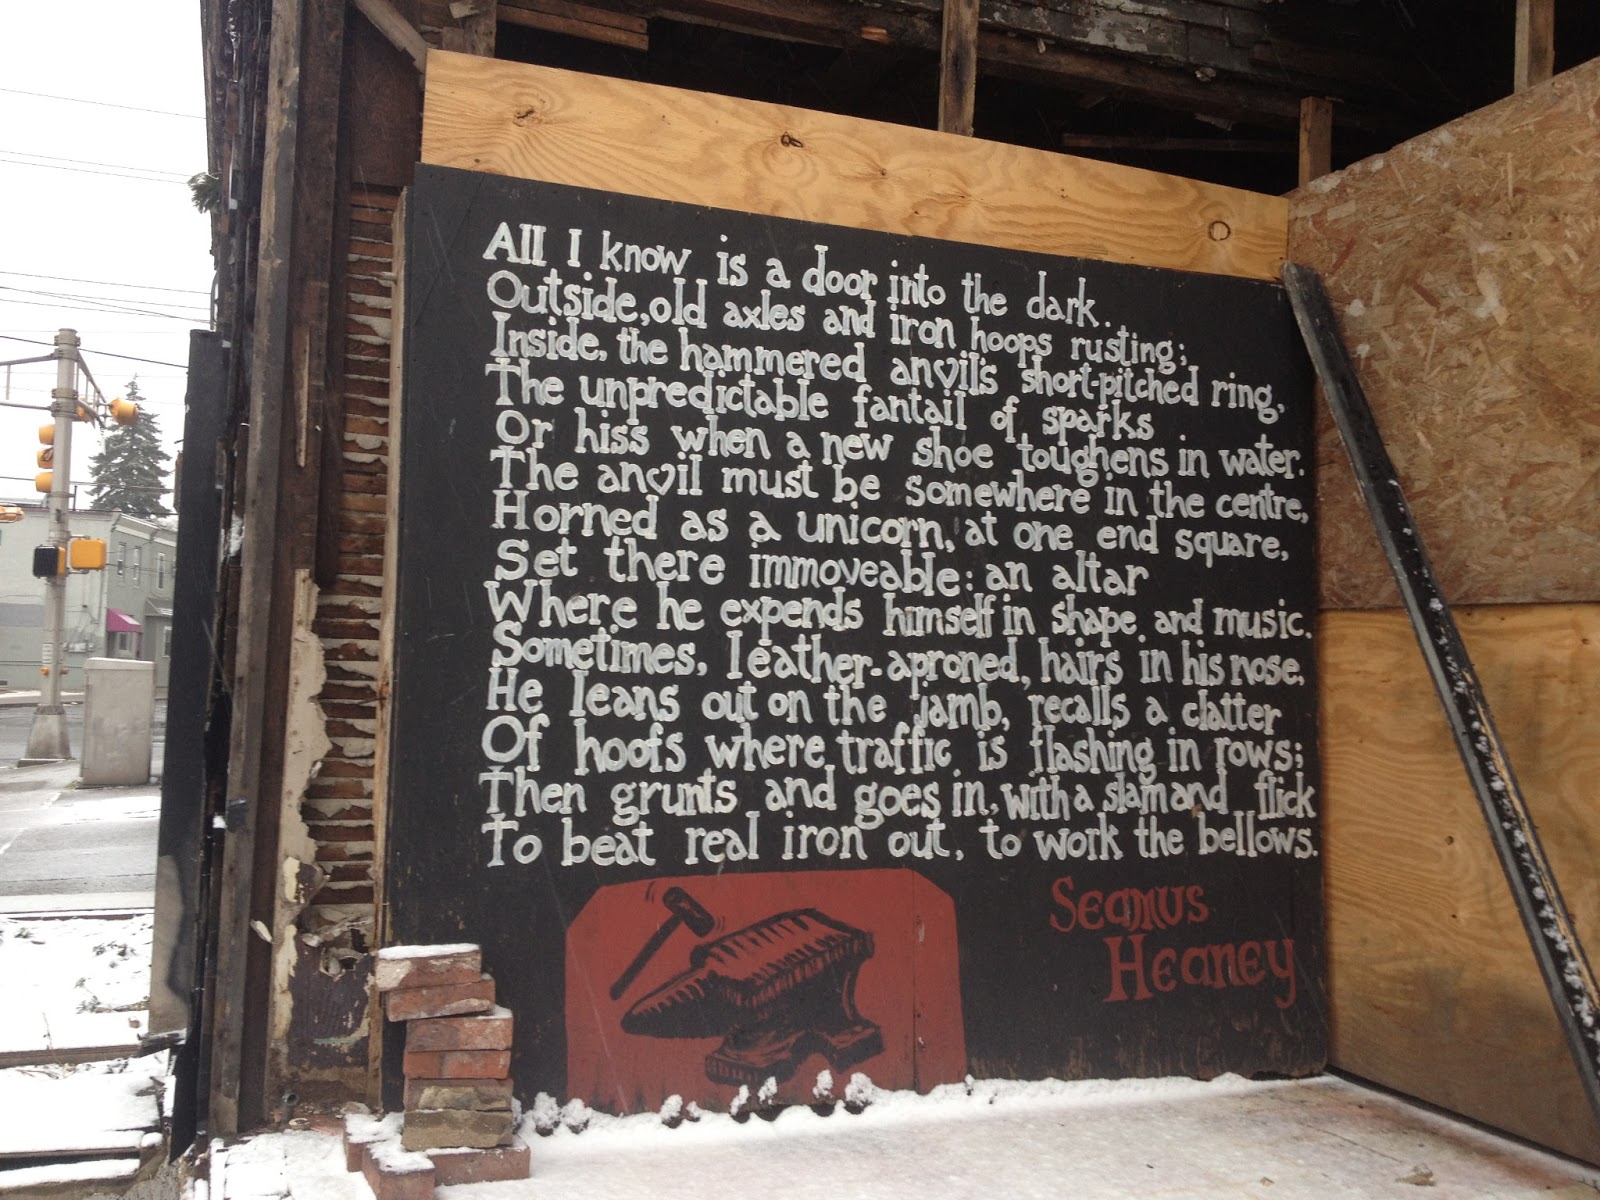 All I know is a door into the dark.
Outside, old axles and iron hoops rusting;
Inside, the hammered anvil's short-pitched ring,
The unpredictable fantail of sparks
Or hiss when a new shoe toughens in water.
The anvil must be somewhere in the centre,
Horned as a unicorn, at one end square,
Set there immoveable: an altar
Where he expends himself in shape and music.
Sometimes, leather-aproned, hairs in his nose,
He leans out on the jamb, recalls a clatter
Of hoofs where traffic is flashing in rows;
Then grunts and goes in, with a slam and flick
To beat real iron out, to work the bellows.
Seamus
Heaney